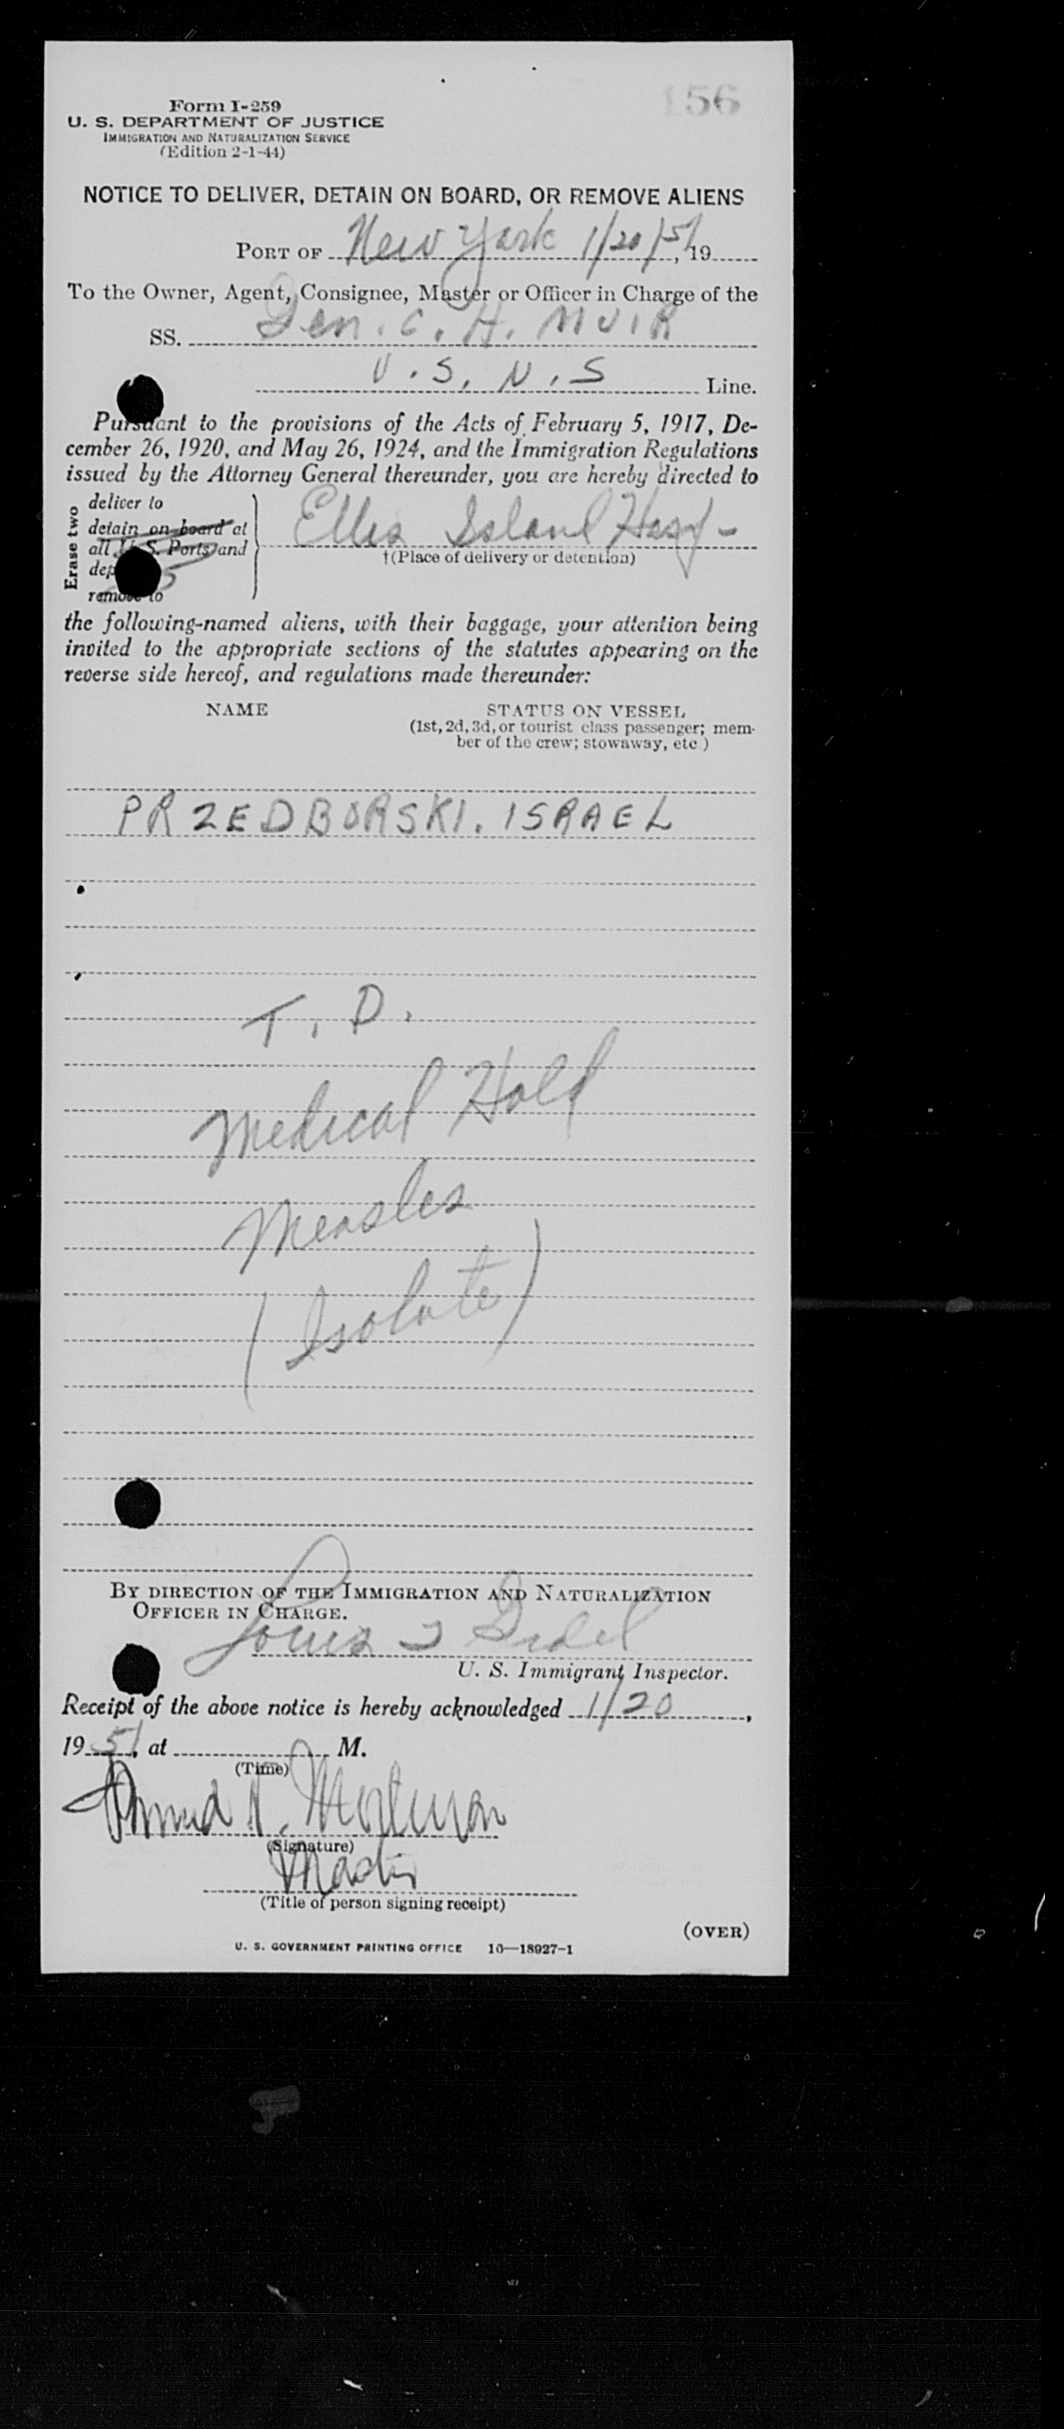 156
Form I-259
U. S. DEPARTMENT OF JUSTICE
IMMIGRATION AND NATURALIZATION SERVICE
(Edition 2-1-44)
NOTICE TO DELIVER, DETAIN ON BOARD, OR REMOVE ALIENS
PORT OF New York 1/20/51, 19
To the Owner, Agent, Consignee, Master or Officer in Charge of the
SS. Gen. C. H. MUIR
U.S.N.S Line.
Pursuant to the provisions of the Acts of February 5, 1917, De-
cember 26, 1920, and May 26, 1924, and the Immigration Regulations
issued by the Attorney General thereunder, you are hereby directed to
Erase two
deliver to
detain on board at
all U. S. Ports and
remove to
Ellis Island Hosp-
†(Place of delivery or detention)
the following-named aliens, with their baggage, your attention being
invited to the appropriate sections of the statutes appearing on the
reverse side hereof, and regulations made thereunder:
NAME STATUS ON VESSEL
(1st, 2d, 3d, or tourist class passenger; mem-
ber of the crew; stowaway, etc.)
PRZEDBORSKI. ISRAEL
T. D.
Medical Hold
Measles
(Isolate)
BY DIRECTION OF THE IMMIGRATION AND NATURALIZATION
OFFICER IN CHARGE.
Louis
U. S. Immigrant Inspector.
Receipt of the above notice is hereby acknowledged 1/20,
1951, at M.
(Time)
(Signature)
(Title of person signing receipt)
(OVER)
U. S. GOVERNMENT PRINTING OFFICE 10—18927-1